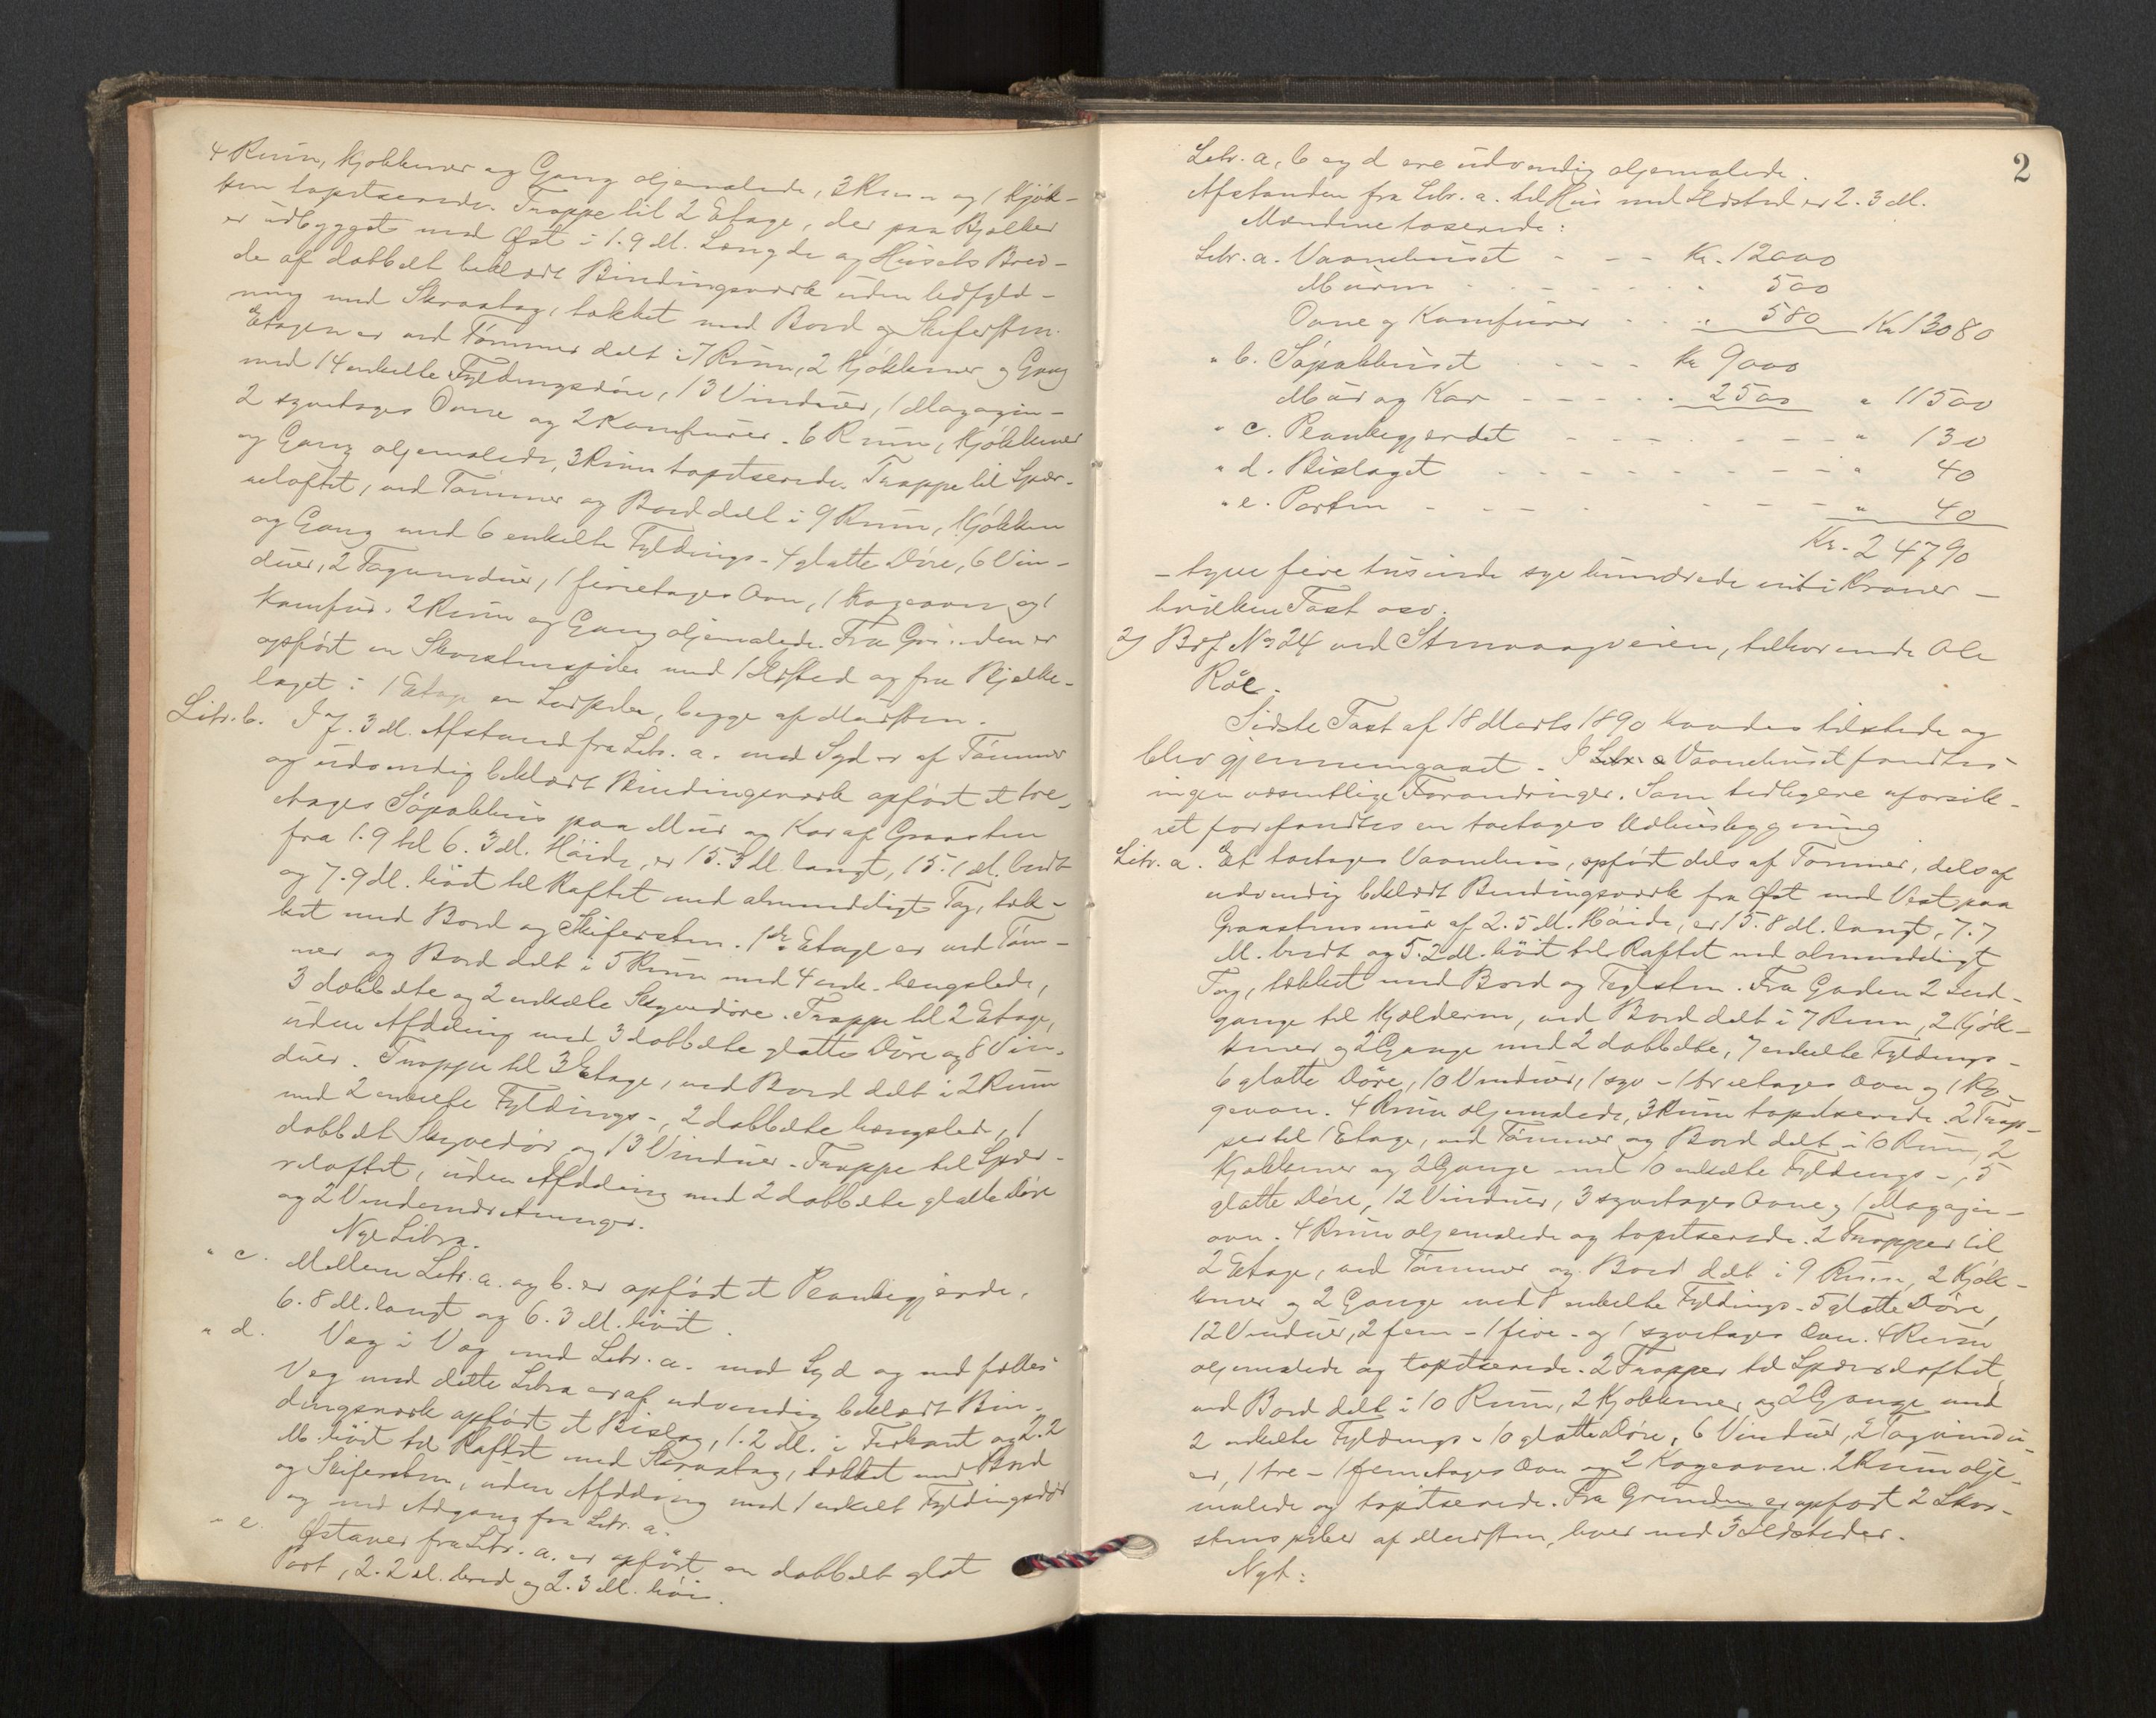 4 Rum, Kjøkkener og Gang oljemalede, 3 Rum og 1 Kjøk-
ken tapetserede. Trappe til 2 Etage, der paa Bjelker
er udbygget mod Øst i 1.9 M. Længde og Husets Bred-
de af dobbelt beklædt Bindingsværk uden Udfyld-
ning med Skraatag, tækket med Bord og Skifersten.
Etagen er ved Tømmer delt i 7 Rum, 2 Kjøkkener og Gang
med 14 enkelte Fyldingsdøre, 13 Vinduer, 1 Magazin-
2 syvetages Ovne og 2 Komfurer. 6 Rum, Kjøkkener
og Gang oljemalede, 3 Rum tapetserede. Trappe til Spær-
reloftet, ved Tømmer og Bord delt i 9 Rum, Kjøkken
og Gang med 6 enkelte Fyldings- 4 glatte Døre, 6 Vin-
duer, 2 Tagvinduer, 1 fireetages Ovn, 1 Kogeovn og 1
Komfur. 2 Rum og Gang oljemalede. Fra Grunden er
opført en Skorstenspibe med 1 Ildsted og fra Bjelke-
laget i 1 Etage en Luftpibe, begge af Mursten.
Litr. b. I 7.3 M. Afstand fra Litr. a. mod Syd er af Tømmer
og udvendig beklædt Bindingsværk opført et tre-
etages Søpakhus paa Mur og Kar af Graasten
fra 1.9 til 6.3 M. Høide, er 15.3 M. langt, 15.1 M. bredt
og 7.9 M. høit til Raftet med almindeligt Tag, tæk-
ket med Bord og Skifersten. 1de Etage er ved Tøm-
mer og Bord delt i 5 Rum med 4 enk. hengslede,
3 dobbelte og 2 enkelte Skyvedøre. Trappe til 2 Etage,
uden Afdeling med 3 dobbelte glatte Døre og 8 Vin-
duer. Trappe til 3 Etage, ved Bord delt i 2 Rum
med 2 enkelte Fyldings-, 2 dobbelte hængslede, 1
dobbelt Skyvedør og 13 Vinduer. Trappe til Spær-
reloftet, uden Afdeling med 2 dobbelte glatte Døre
og 2 Vindeindretninger.
Nye Litra.
" c. Mellem Litr. a. og b. er opført et Plankegjerde,
6.8 M. langt og 6.3 M. høit.
" d. Væg i Væg med Litr. a. mod Syd og med fælles
Væg med dette Litra er af udvendig beklædt Bin-
dingsværk opført et Bislag, 1.2 M. i Firkant og 2.2
M. høit til Raftet med Skraatag, tækket med Bord
og Skifersten, uden Afdeling med 1 enkelt Fyldingsdør
og med Adgang fra Litr. a.
" e. Østover fra Litr. a. er opført en dobbelt glat
Port, 2.2 M. bred og 2.3 M. høi.
2
Litr. a, b og d ere udvendig oljemalede.
Afstanden fra Litr. a. til Hus med Ildsted er 2.3 M.
Mændene taxerede:
Litr. a. Vaanehuset - - - Kr. 12000
Muren - - - - - " 500
Ovne og Komfurer - - - " 580 Kr 13080
" b. Søpakhuset - - - - Kr 9000
Mur og Kar - - - - - " 2500 " 11500
" c. Plankegjerdet - - - - - - - " 130
" d. Bislaget - - - - - - - - - " 40
" e. Porten - - - - - - - " 40
Kr. 24790
- tyve fire tusinde syv hundrede nitti Kroner -
hvilken Taxt osv.
2) Brf No 24 ved Strnvaagveien, tilhørende Ole
Røe.
Sidste Taxt af 18 Marts 1890 havdes tilstede og
blev gjennemgaaet. I Litr. a Vaanehuset fandtes
ingen væsentlige Forandringer. Som tidligere uforsik-
ret forefandtes en toetages Udhusbygning
Litr. a. Et toetages Vaanehus, opført dels af Tømmer, dels af
udvendig beklædt Bindingsværk fra Øst mod Vest paa
Graastensmur af 2.5 M. Høide, er 15.8 M. langt, 7.7
M. bredt og 5.2 M. høit til Raftet med almindeligt
Tag, tækket med Bord og Teglsten. Fra Gaden 2 Ind-
gange til Kjælderen, ved Bord delt i 7 Rum, 2 Kjøk-
kener og 2 Gange med 2 dobbelte, 7 enkelte Fyldings-
6 glatte Døre, 10 Vinduer, 1 syv- 1 treetages Ovn og 1 Ko-
geovn. 4 Rum oljemalede, 3 Rum tapetserede. 2 Trap-
per til 1 Etage, ved Tømmer og Bord delt i 10 Rum, 2
Kjøkkener og 2 Gange med 10 enkelte Fyldings-, 5
glatte Døre, 12 Vinduer, 3 syvetages Ovne og 1 Magazin-
ovn. 4 Rum oljemalede og tapetserede. 2 Trapper til
2 Etage, ved Tømmer og Bord delt i 9 Rum, 2 Kjøk-
kener og 2 Gange med 8 enkelte Fyldings- 5 glatte Døre,
12 Vinduer, 2 fem- 1 fire- og 1 syvetages Ovn. 4 Rum
oljemalede og tapetserede. 2 Trapper til Spærreloftet,
ved Bord delt i 10 Rum, 2 Kjøkkener og 2 Gange med
2 enkelte Fyldings- 10 glatte Døre, 6 Vinduer, 2 Tagvindu-
er, 1 tre- 1 femetages Ovn og 2 Kogeovne. 2 Rum olje-
malede og tapetserede. Fra Grunden er opført 2 Skor-
stenspiber af Mursten, hver med 3 Ildsteder.
Nyt: